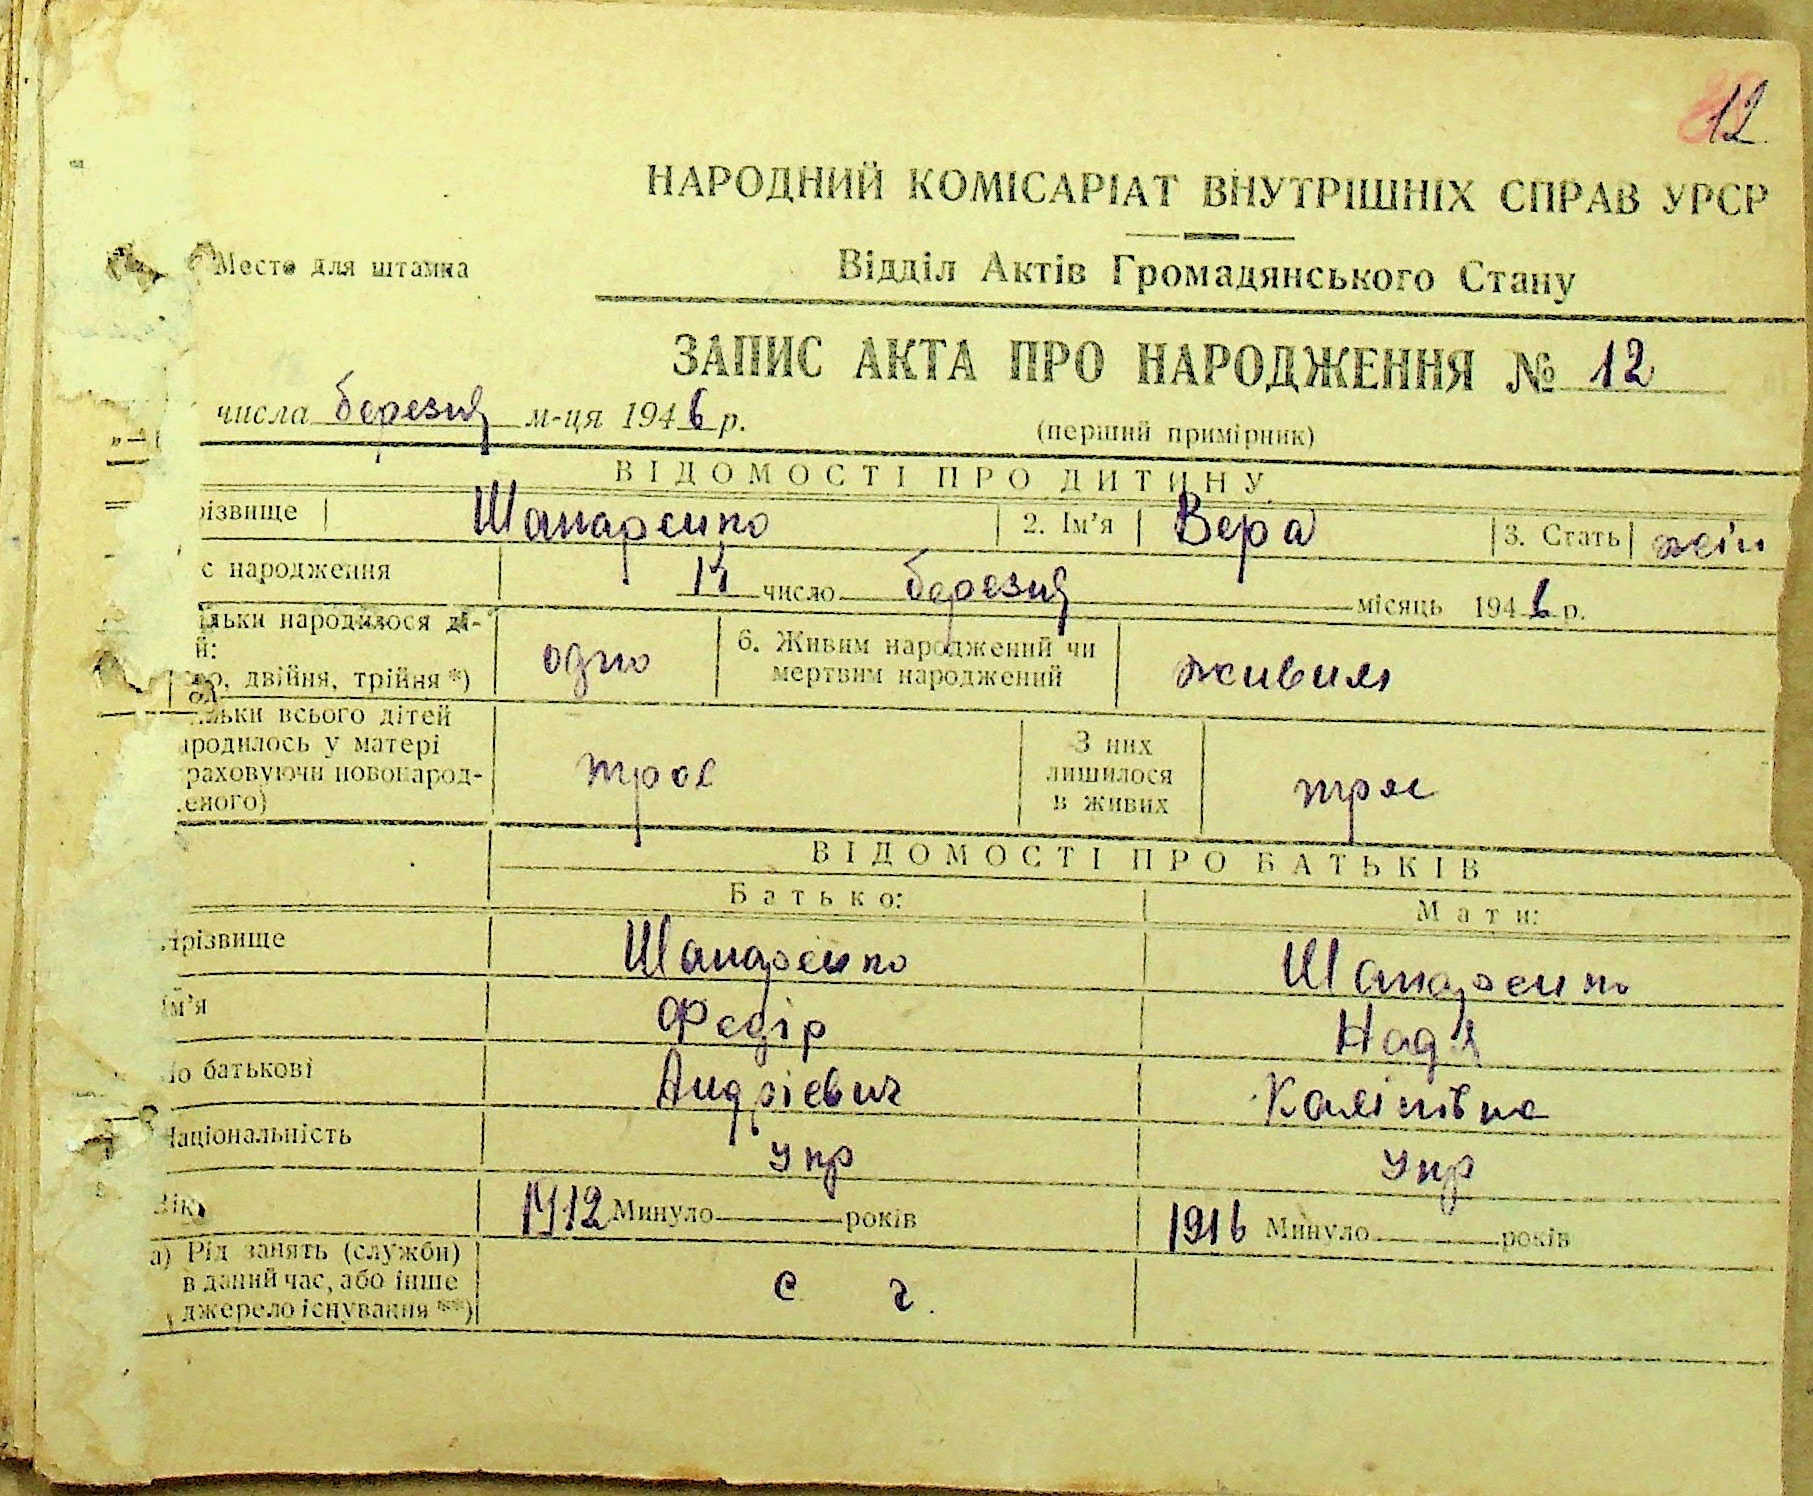 12.
НАРОДНИЙ КОМІСАРІАТ ВНУТРІШНІХ СПРАВ УРСР
Место для штампа
Відділ Актів Громадянського Стану
ЗАПИС АКТА ПРО НАРОДЖЕННЯ № 12
числа березня м-ця 1946 р.
(перший примірник)
ВІДОМОСТІ ПРО ДИТИНУ
різвище Шапаренко 2. Ім'я Вера 3. Стать жін
с народження 14 число березня місяць 1946 р.
ільки народилося ді-
й:
но, двійня, трійня *) одно 6. Живим народжений чи
мертвим народжений живим
льки всього дітей
ародилось у матері
раховуючи новонарод-
еного) троє З них
лишилося
в живих троє
ВІДОМОСТІ ПРО БАТЬКІВ
Батько: Мати:
різвище Шапаренко Шапаренко
Ім'я Федір Надя
По батькові Андрієвич Калінівна
Національність Укр Укр
Вік 1912 Минуло років 1916 Минуло років
а) Рід занять (служби)
в даний час, або інше
джерело існування **) с г.